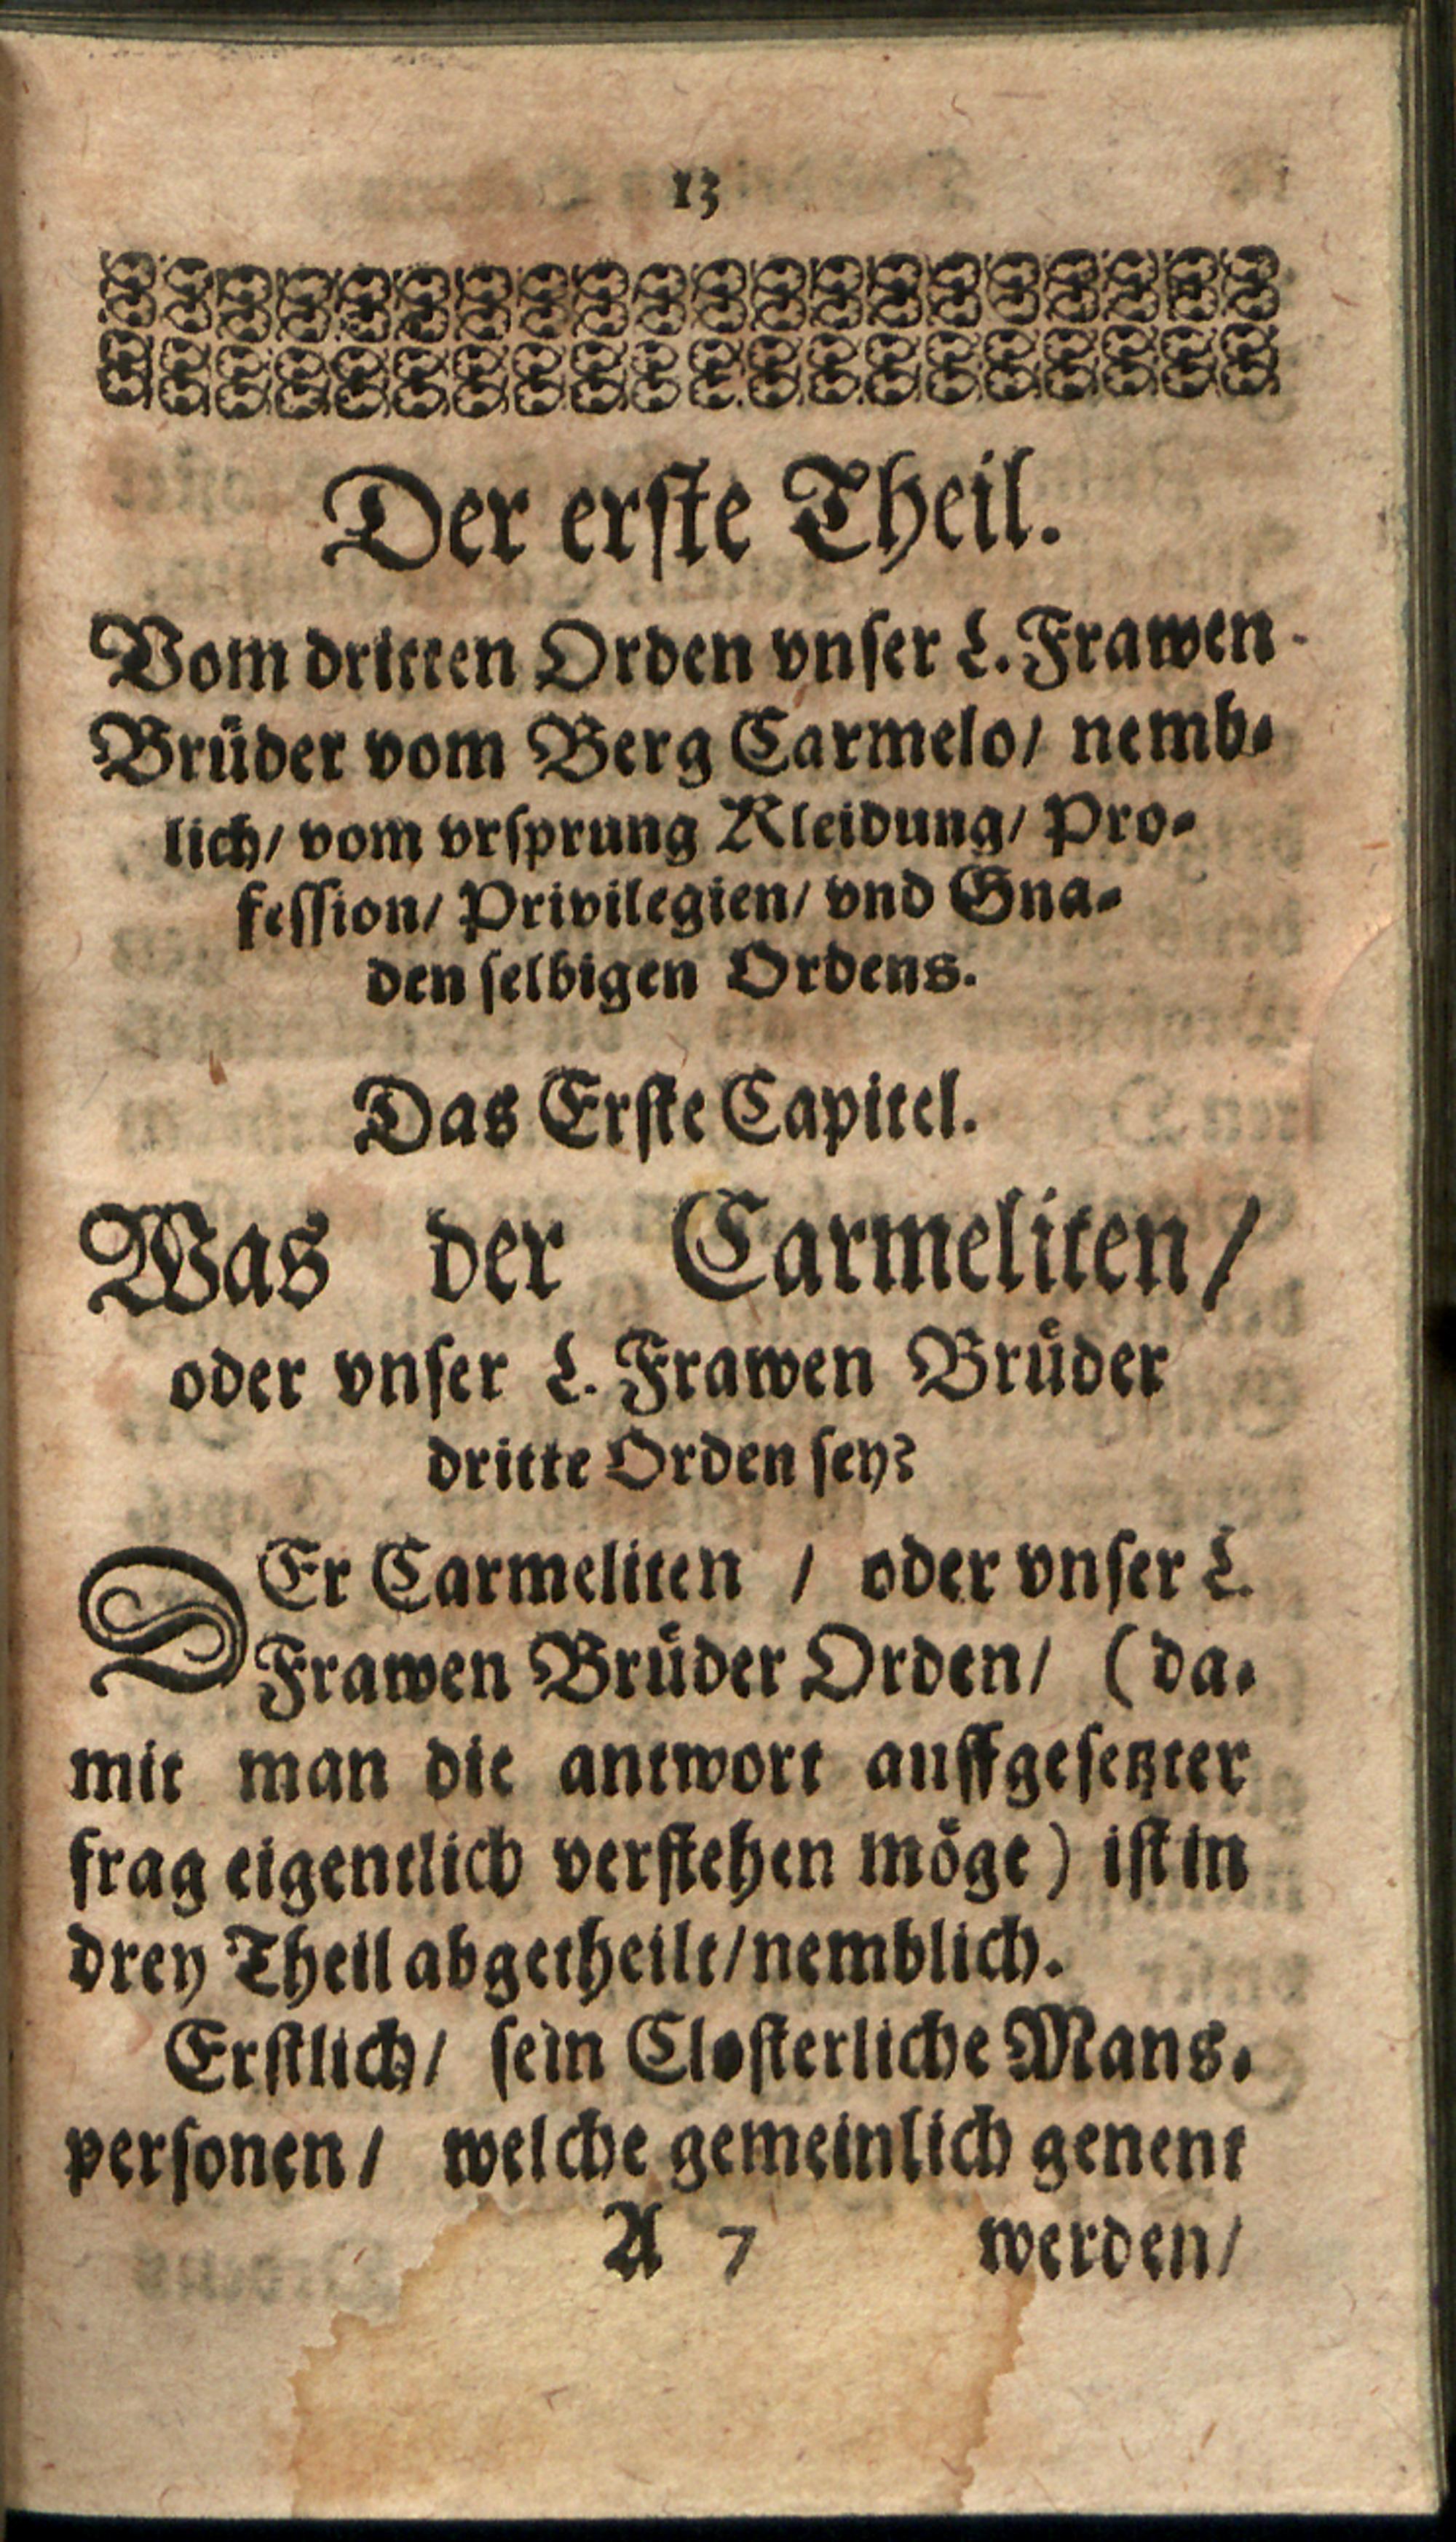 13
Der erste Theil.
Vom dritten Orden vnser L. Frawen
Brüder vom Berg Carmelo/ nemb-
lich/ vom vrsprung Kleidung/ Pro-
fession/ Privilegien/ vnd Gna-
den selbigen Ordens.
Das Erste Capitel.
Was der Carmeliten/
oder vnser L. Frawen Brüder
dritte Orden sey?
DEr Carmeliten / oder vnser L.
Frawen Brüder Orden/ (da-
mit man die antwort auffgesetzter
frag eigentlich verstehen möge) ist in
drey Theil abgetheilt/ nemblich.
Erstlich/ sein Closterliche Mans-
personen/ welche gemeinlich genent
A 7 werden/